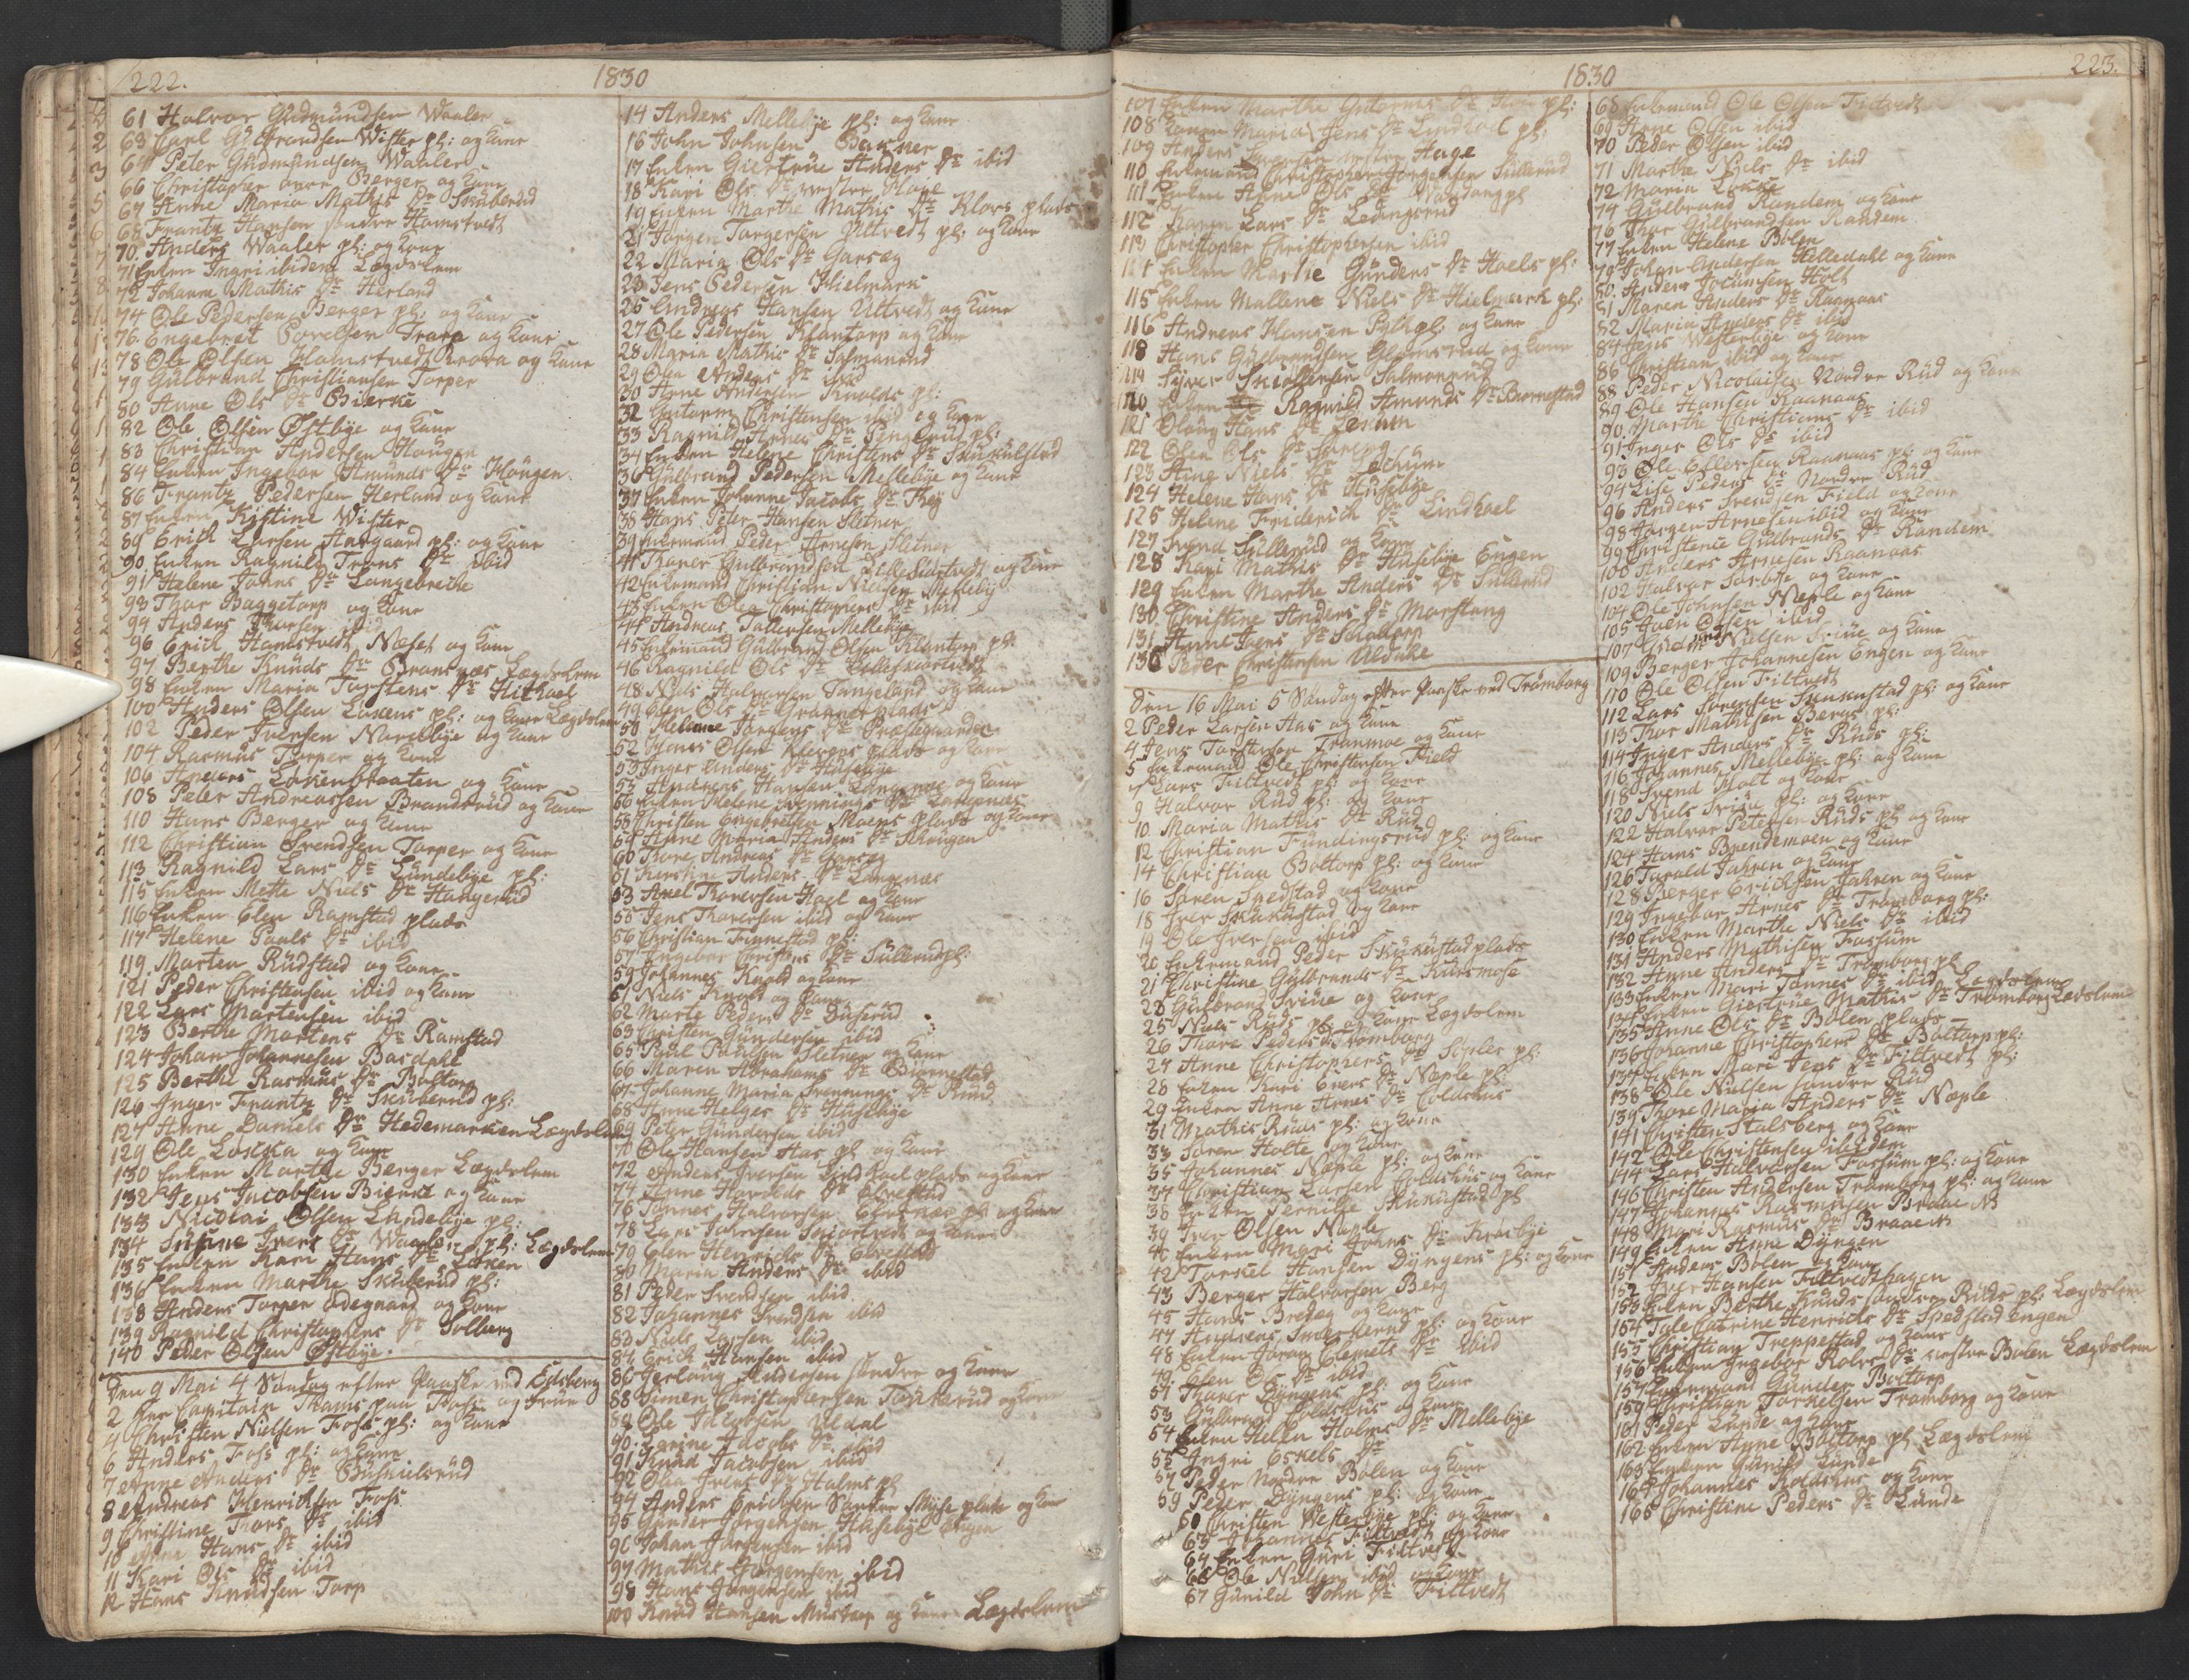 222.
1830
61 Halvor Gudmundsen Waaler
63 Carl Gulbrandsen Wister pl: og Kone
64 Peter Gudmundsen Waaler
66 Christopher øvre Berger og Kone
67 Anne Maria Mathis Dr Skuberud
68 Frantz Hansen søndre Hamstvedt
70. Anders Waaler pl: og Kone
71 Enken Ingri ibidem Lægdslem
72 Johanne Mathis Dr Herland
74 Ole Pedersen Berger pl: og Kone
76. Engebret Torp og Kone
78 Ole Olsen Hamstvedt og Kone
79 Gulbrand Christiansen Torper
80 Anne Ols Dr Bierke
82 Ole Olsen Østbye og Kone
83 Christian Andersen Haugen
84 Enken Ingebor Amunds Dr Haugen
86 Frantz Pedersen Herland og Kone
87 Enken Kistine Wister
89 Erich Larsen Aasgaard pl: og Kone
90. Enken Ragnild Trons Dr ibid
91 Helene Johns Dr Langebrecke
93 Thor Baggetorp og Kone
94 Anders Thorsen ibid
96 Erich Hamstvedt Næset og Kone
97 Berthe Knuds Dr Lægdslem
98 Enken Maria Torstens Dr
100 Anders Olsen Løkens pl: og Kone Lægdslem
102 Peder Iversen Narvebye og Kone
104 Rasmus Torper og Kone
106 Anders Løkenbraaten og Kone
108 Peter Andreassen Brandsrud og Kone
110 Hans Berger og Kone
112 Christian Svendsen Torper og Kone
113 Ragnild Lars Dr Lundebye pl:
115 Enken Mette Niels Dr Hangerud
116 Enken Elen Ramstad plads
117 Helene Pauls Dr ibid
119 Marten Rudstad og Kone
121 Peder Christensen ibid og Kone
122 Lars Martensen ibid
123 Berthe Martens Dr Ramstad
124 Johan Johannesen Basdahl
125 Berthe Rasmus Dr Boltorp
126 Inger Frantz Dr Skuberud pl:
127 Anne Daniels Dr Hedemarken Lægdslem
129 Ole Løkka og Kone
130 Enken Marthe Berger Lægdslem
132 Jens Jacobsen Bierke og Kone
133 Nicolai Olsen Lundebye pl:
134 Ivers Dr Waaler pl: Lægdslem
135 Enken Kari Hans Dr Løken
136 Enken Marthe Skuberud pl:
138 Anders Torper Ødegaard og Kone
139 Ragnild Christophers Dr Solberg
140 Peder Olsen Østbye.
Den 9 Mai 4 Søndag efter Paaske ved Edsberg
2 Herr Capitain Thams paa Foss og Frue
4 Christen Nielsen Foss pl: og Kone
6 Anders Foss pl: og Kone
7 Anne Anders Dr Buskielsrud
8 Andreas Henrichsen Foss
9 Christine Thors Dr ibid
10 Hans Dr ibid
11 Kari Ols Dr ibid
12 Hans Knudsen Torp
14 Anders Mellebye pl: og Kone
16 John Johnsen
17 Enken Giertrue Anders Dr ibid
18 Kari Ols Dr vestre
19 Enken Marthe Mathis Dr Klors plads
21 Jørgen Torgersen Ultvedt pl: og Kone
22 Maria Ols Dr Garseg
23 Jens Pedersen Hielmark
25 Andreas Hansen Ultvedt og Kone
27 Ole Pedersen Klantorp og Kone
28 Maria Mathis Dr Salmonrud
29 Olea Anders Dr ibid
30 Arne Andersen Knolds pl:
32 Guttorm Christensen ibid og Kone
33 Ragnild Arnes Dr pl:
34 Enken Helene Christens Dr
36 Gulbrand Pedersen Mellebye og Kone
37 Enken Johanne Jacobs Dr
38 Hans Peter Hansen Sletner
39 Enkemand Peder Arnesen Sletner
41 Gulbrandsen og Kone
42 Enkemand Christian Nielsen Mellebye
43 Enken Olea Christophers Dr ibid
44 Andreas Tollersen Mellebye
45 Enkemand Gulbrand Olsen Klantorp pl:
46 Ragnild Ols Dr
48 Nils Halvorsen Tangeland og Kone
49 Elen Ols Dr plads
50 Helene Jørgens Dr Præstegaarden
52 Hans Olsen plads og Kone
53 Inger Anders Dr Husebye
55 Andreas Hansen Langenæs og Kone
56 Enken Helene Svennings Dr Langenæs
58 Christen Engebretsen Moens plads og Kone
59 Anne Maria Anders Dr Skougen
60 Andreas Dr Garseg
61 Kirstine Anders Dr Langenæs
63 Axel Thoresen Hoel og Kone
55 Jens Thoresen ibid og Kone
56 Christian Finnestad pl:
57 Ingebor Christens Dr Sullerud pl:
59 Johannes Knold og Kone
61 Niels Knold og Kone
62 Marte Peders Dr Buserud
63 Christen Gundersen ibid
65 Paul Paulsen Sletner og Kone
66 Maren Abrahams Dr Biørnestad
67 Johanne Maria Svennungs Dr Rud
68 Anne Helges Dr Husebye
69 Peter Gundersen ibid
70 Ole Hansen Aas pl og Kone
72 Anders Iversen plads og Kone
74 Anne Dr
76 Johannes Halvorsen pl: og Kone
78 Lars Johnsen og Kone
79 Elen Henrichs Dr
80 Maria Anders Dr ibid
81 Peder Svendsen ibid.
82 Johannes Svendsen ibid
83 Niels Larsen ibid
84 Erich Hansen ibid
86 Andersen søndre og Kone
88 Simen Christophersen og Kone
89 Ole Jacobsen Uldal
90. Karine Jacobs Dr ibid
91 Knud Jacobsen ibid
92 Olea Ivers Dr Halms pl
94 Anders Erichsen Søndre Myse plads og Kone
95 Gunder Jørgensen Husebye Engen
96 Johan Jørgensen ibid
97 Mathis Jørgensen ibid
98 Hans Jørgensen ibid
100 Knud Hansen og Kone Lægdslem
1830
223.
107 Enken Marthe Guttorms Dr pl:
108 Konen Maria Jens Dr Lindhoel pl:
109 Anders vestre Hage
110 Enkemand Christopher Jørgensen Sullerud
111 Enken Anne Ols Dr pl
112 Karen Lars Dr
113 Christopher Christophersen ibid
114 Enken Marthe Gunders Dr Hoels pl:
115 Enken Mallene Niels Dr Hielmark pl:
116 Andreas Hansen pl: og Kone
118 Hans Gulbrandsen og Kone
119 Syver Salmonrud
120 Enken Ragnild Amunds Dr Biørnestad
121 Oloug Hans Dr
122 Olea Ols Dr
123 Anne Niels Dr
124 Helene Hans Dr Husebye
125 Helene Friderich Dr Lindhoel
127 Svend Sullerud og Kone
128 Kari Mathis Dr Husebye Engen
129 Enken Marthe Anders Dr Sullerud
130 Christine Anders Dr Morstang
131 Anne Jens Dr
136 Peder Christensen Uldahl
Den 16 Mai 5 Søndag efter Paaske ved Trømborg
2 Peder Larsen Aas og Kone
4 Jens Torstensen Tranmoe og Kone
5 Enkemand Ole Christensen Field
7 Lars Filtvedt pl: og Kone
9 Halvor Rud pl: og Kone
10 Maria Mathis Dr Rud
12 Christian Fundingsrud pl: og Kone
14 Christian Boltorp pl: og Kone
16 Søren Spedstad og Kone
18 Iver Skukustad og Kone
19 Ole Iversen ibid
20 Enkemand Peder Skukustad plads
21 Christine Gulbrands Dr Kursmose
23 Gulbrand Friue og Kone
25 Niels Ruds pl: og Kone Lægdslem
26 Thore Peders Dr Trømborg
27 Anne Christophers Dr pl:
28 Enken Kari Evers Dr Næple pl:
29 Enken Anne Arnes Dr Coldshus
31 Mathis Ruds pl: og Kone
33 Søren Holte og Kone
35 Johannes Næple pl: og Kone
37 Christian Larsen Coldshus og Kone
38 Enken Pernille Skukustad pl
39 Iver Olsen Næple
40 Enken Mari Johns Dr Krosbye
42 Torkel Hansen Dyngens pl: og Kone
43 Berger Halvorsen Berg
45 Hans Bredeg og Kone
47 Andreas pl: og Kone
48 Enken Clemets Dr ibid
49 Elen Ols Dr ibid
51 Dyngens pl: og Kone
53 Gulbrand Coldshus og Kone
54 Enken Helen Holms Dr Mellebye
55 Ingri Eskels Dr
57 Peder Nordre Bølen og Kone
59 Peder Dyngens pl: og Kone
60 Christen Westerbye pl: og Kone
63 Johannes Filtvedt og Kone
64 Enken Guri Filtvedt
66 Ole Nielsen ibid og Kone
67 Gunild John Dr Filtvedt
68 Enkemand Ole Olsen Filtvedt
69 Arne Olsen ibid
70 Peder Olsen ibid
71 Marthe Niels Dr ibid
72 Maria Løkke
74 Gulbrand Randem og Kone
76 Thor Gulbrandsen Randem
77 Enken Helene Bølen
79 Johan Andersen Helledahl og Kone
80. Anders Jocumsen Holt
81 Maren Anders Dr Raanaas
82 Maria Anders Dr ibid
84 Jens Westerbye og Kone
86 Christian ibid og Kone
88 Peder Nicolaisen Nordre Rud og Kone
89 Ole Hansen Raanaas
90. Marthe Christians Dr ibid
91 Inger Ols Dr ibid
93 Ole Ellefsen Raanaas pl: og Kone
94 Lise Peders Dr Nordre Rud
96 Anders Svendsen Field og Kone
98 Jørgen Arnesen ibid og Kone
99 Christence Gulbrands Dr Randem
100 Anders Arnesen Raanaas
102 Halvor Sørbye og Kone
104 Ole Johnsen Næple og Kone
105 Hoen Olsen ibid
107 Gudmund Nielsen Friue og Kone
109 Berger Johannesen Engen og Kone
110 Ole Olsen Filtvedt
112 Lars Sørensen Skukustad pl: og Kone
113 Thor Mathisen Bergs pl:
114 Inger Anders Dr Ruds pl:
116 Johannes Mellebye pl: og Kone
118 Svend Holt og Kone
120 Niels Friue pl: og Kone
122 Halvor Petersen Ruds pl og Kone
124 Hans Brendemoen og Kone
126 Torald Jahren og Kone
128 Berger Erichsen Jahren og Kone
129 Ingebor Arnes Dr Trømborg pl:
130 Enken Marthe Niels Dr ibid
131 Anders Mathisen Fossum
132 Anne Anders Dr Trømborg pl
133 Enken Mari Tønnes Dr ibid Lægdslem
134 Enken Giertrue Mathis Dr Trømborg Lægdslem
135 Anne Ols Dr Bølen plads
136 Johanne Christophers Dr Boltorp pl:
137 Enken Mari Jens Dr Filtvedt pl:
138 Ole Nielsen søndre Rud
139 Thore Maria Anders Dr Næple
141 Christen Stalsberg og Kone
142 Ole Christensen ibidem
144 Lars Halvorsen Fossum pl: og Kone
146 Christen Andersen Trømborg pl: og Kone
147 Johannes Rasmusen Braaten
148 Mari Rasmus Dr Braaten
149 Enken Anne Dyngen
151 Anders Bølen og Kone
152 Iver Hansen Filtvedthagen
153 Enken Berthe Knuds søndre Ruds pl: Lægdslem
154 Tale Catrine Henrichs Dr Spedstad engen
155 Christian Treppestad og Kone
156 Enken Ingebor Rolvs Dr vestre Bølen Lægdslem
157 Enkemand Gunder Boltorp
159 Christian Torkelsen Trømborg og Kone
161 Peder Lunde og Kone
162 Enken Anne Boltorp pl Lægdslem
163 Enken Gunild Lunde
164 Johannes Koldshus og Kone
165 Christine Peders Dr Lunde